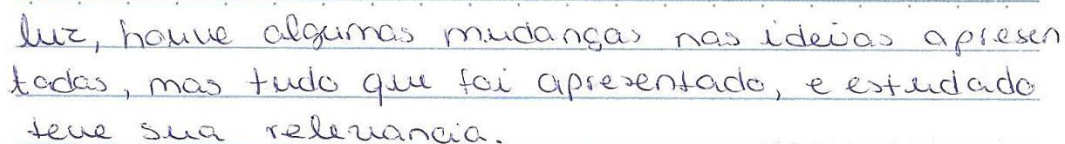 luz, houve algumas mudanças nas ideias apresen
tadas, mas tudo que foi apresentado, e estudado
teve sua relevancia.